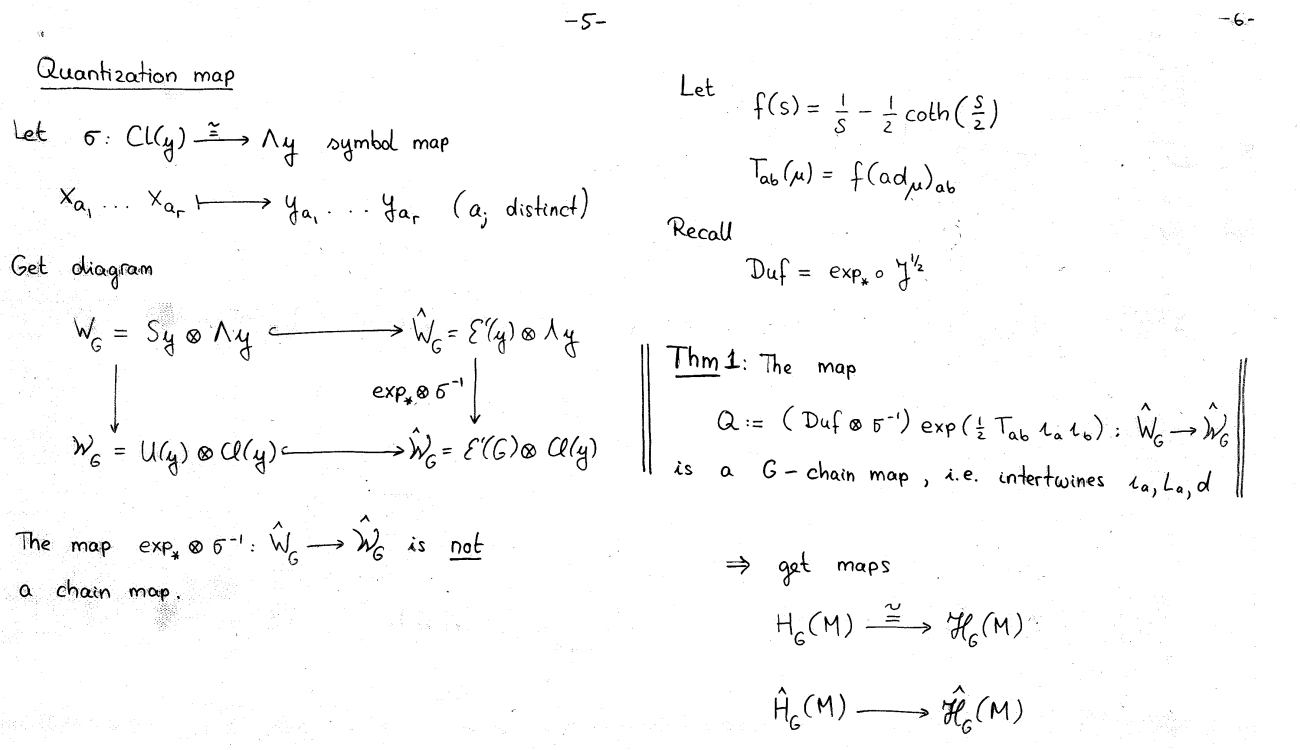 -5-
Quantization map
Let σ: Cl(y) ≅⟶ Λy symbol map
x_{a_1} ... x_{a_r} ⟼ y_{a_1} ... y_{a_r} (a_j distinct)
Get diagram
W_G = Sy ⊗ Λy ↪ Ŵ_G = ℰ'(y) ⊗ Λy
↓ exp_* ⊗ σ^{-1} ↓
𝒲_G = U(y) ⊗ Cl(y) ↪ 𝒲̂_G = ℰ'(G) ⊗ Cl(y)
The map exp_* ⊗ σ^{-1}: Ŵ_G ⟶ 𝒲̂_G is not
a chain map.
-6-
Let f(s) = 1/s - 1/2 coth(s/2)
T_{ab}(μ) = f(ad_μ)_{ab}
Recall
Duf = exp_* ∘ J^{1/2}
Thm 1: The map
Q := (Duf ⊗ σ^{-1}) exp(1/2 T_{ab} ι_a ι_b) : Ŵ_G → 𝒲̂_G
is a G-chain map, i.e. intertwines ι_a, L_a, d
⇒ get maps
H_G(M) ≅⟶ ℋ_G(M)
Ĥ_G(M) ⟶ ℋ̂_G(M)